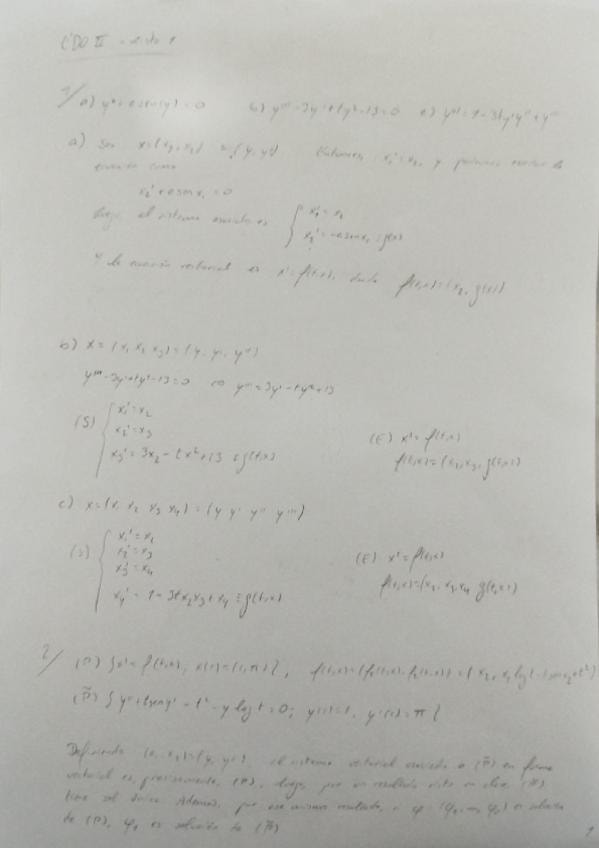 EDO II - lista 1
1/ a) y'' + a sen(y) = 0 b) y''' - 3y' + ty² - 13 = 0 c) y'''' = 1 - 3ty'y'' + y'''
a) Sea x = (x₁, x₂) = (y, y') Entonces, x₁' = x₂, y podemos escribir la
ecuación como
x₂' + a sen x₁ = 0
luego, el sistema asociado es { x₁' = x₂
x₂' = -a sen x₁ ≡ g(x)
Y la ecuación vectorial es x' = f(t,x), donde f(t,x) = (x₂, g(x))
b) x = (x₁ x₂ x₃) = (y, y', y'')
y''' - 3y' + ty² - 13 = 0 y''' = 3y' - ty² + 13
(S) { x₁' = x₂
x₂' = x₃
x₃' = 3x₂ - tx² + 13 ≡ g(t,x)
(E) x' = f(t,x)
f(t,x) = (x₂, x₃, g(t,x))
c) x = (x₁ x₂ x₃ x₄) = (y y' y'' y''')
(S) { x₁' = x₂
x₂' = x₃
x₃' = x₄
x₄' = 1 - 3tx₂x₃ + x₄ ≡ g(t,x)
(E) x' = f(t,x)
f(t,x) = (x₂, x₃, x₄, g(t,x))
2/ (P) { x' = f(t,x); x(1) = (1, π) }, f(t,x) = (f₁(t,x), f₂(t,x)) = (x₂, x₁ log t - t sen x₂ + t²)
(P̃) { y'' + t sen y' - t² - y log t = 0; y(1) = 1, y'(1) = π }
Definiendo (x₁, x₂) = (y, y'), el sistema vectorial asociado a (P̃) en forma
vectorial es, precisamente, (P), luego, por un resultado visto en clase, (P̃)
tiene sol única. Además, por ese mismo resultado, si φ = (φ₁, φ₂) es solución
de (P), φ₁ es solución de (P̃)
1